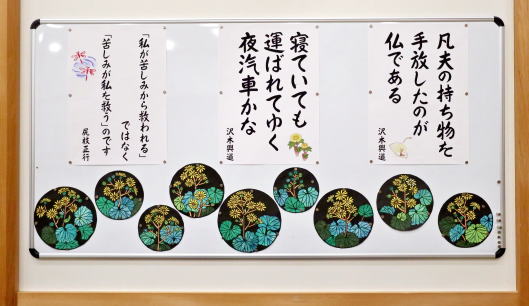 凡夫の持ち物を
手放したのが
仏である
沢木興道
寝ていても
運ばれてゆく
夜汽車かな
沢木興道
「私が苦しみから救われる」
ではなく
「苦しみが私を救う」のです
尻枝正行